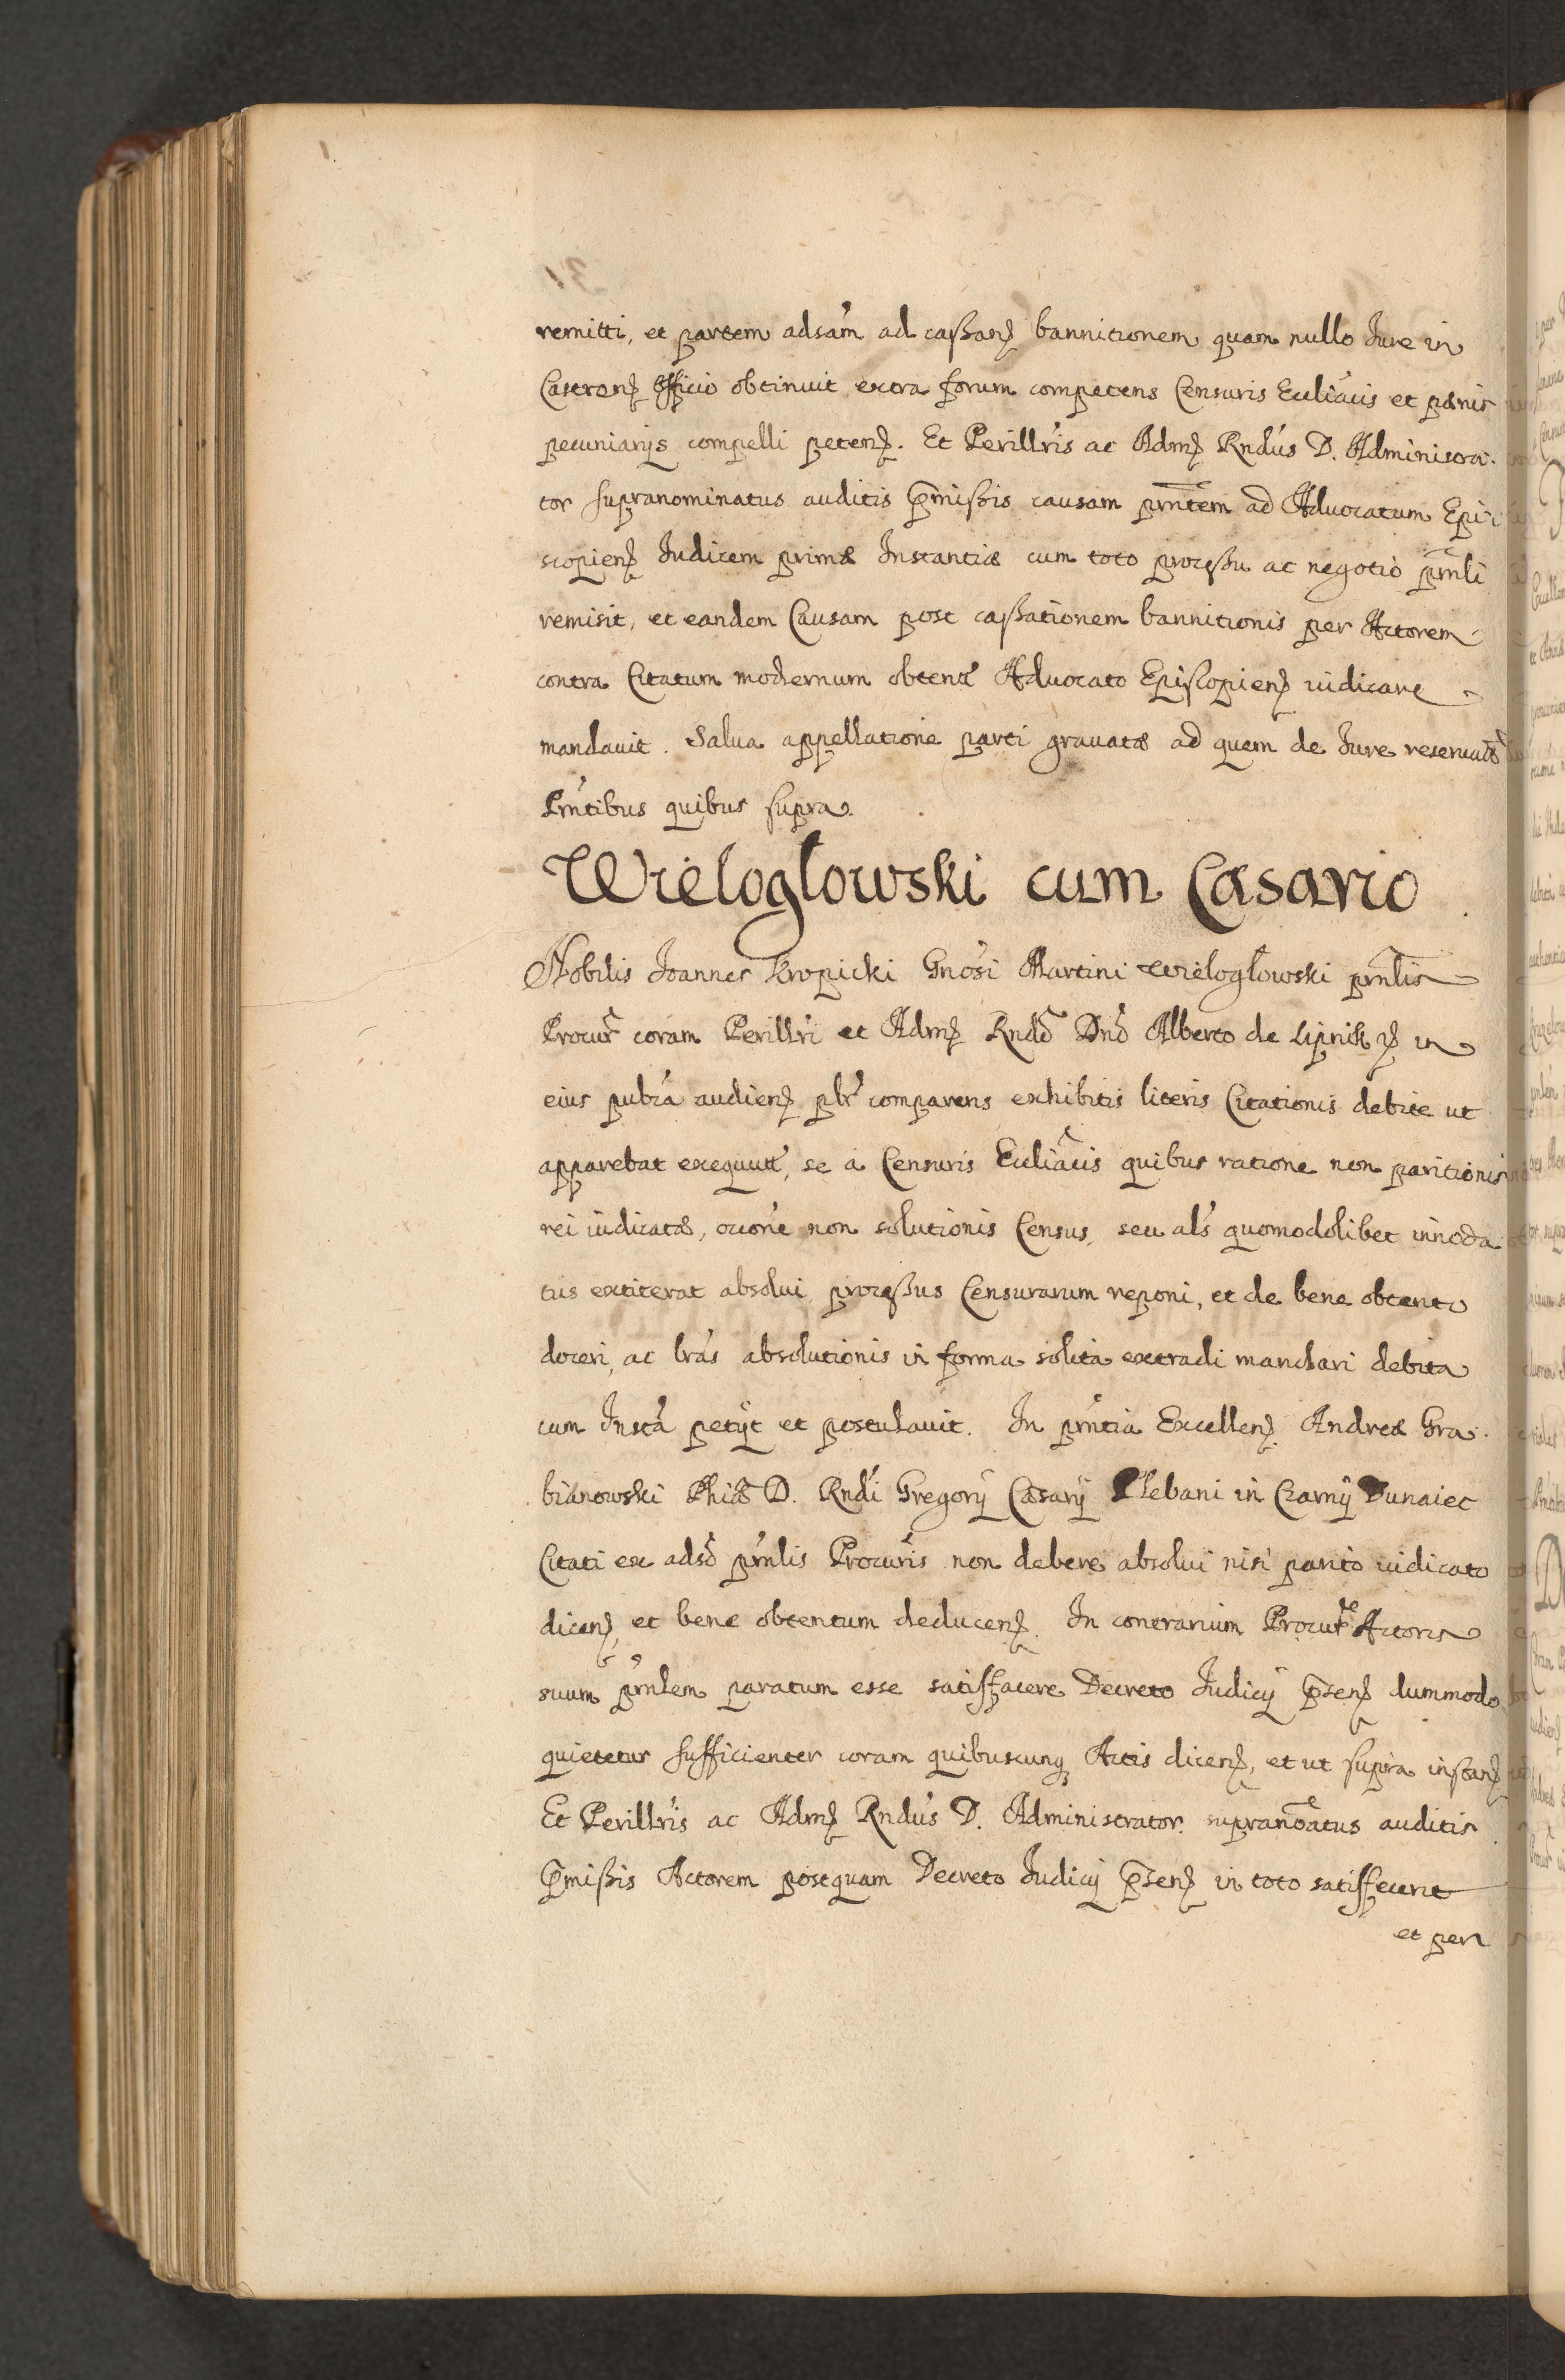 remitti, et partem adsam ad cassanȝ bannitionem quam nullo Iure in
Castrenȝ Officio obtinuit extra forum competens Censuris Eccliacis et pænis
pecuniarijs compelli petenȝ. Et Perillris ac Admȝ Rndus D. Administra-
tor supranominatus auditis p̃missis causam prntem ad Aduocatum Epi-
scopienȝ Iudicem primæ Instantiæ cum toto processu ac negotio prnli
remisit, et eandem Causam post cassationem bannitionis per Actorem
contra Citatum modernum obtentæ Aduocato Episcopienȝ iudicare
mandauit. Salua appellatione parti grauatæ ad quem de Iure reseruata
Prntibus quibus supra.
Wieloglowski cum Cæsario
Nobilis Ioannes Kropicki Gnosi Martini Wieloglowski prnlis
Procur coram Perillri et Admȝ Rndo Dno Alberto de Lipnik ȝ in
eius publca audienȝ plr comparens exhibitis literis Citationis debite ut
apparebat exequut, se a Censuris Eccliacis quibus ratione non paritionis
rei iudicatæ, occone non solutionis Census, seu als quomodolibet innoda-
tus extiterat absolui processus Censurarum reponi, et de bene obtento
doceri, ac lras absolutionis in forma solita extradi mandari debita
cum Insta petijt et postulauit. In prntia Excellenȝ Andreæ Gra-
bianowski Phiæ D. Rndi Gregorij Cæsarij Plebani in Czarnÿ Dunaiec
Citati ex adso prnlis Procuris non debere absolui nisi parito iudicato
dicenȝ, et bene obtentum deducenȝ. In contrarium Procure Actoris
suum prnlem paratum esse satisfacere Decreto Iudicij p̃senȝ dummodo
quietetur sufficienter coram quibuscunqȝ Actis dicenȝ, et ut supra instanȝ
Et Perillris ac Admȝ Rndus D. Administrator supranoatus auditis
p̃missis Actorem postquam Decreto Iudicij p̃senȝ in toto satisfecerit
et per